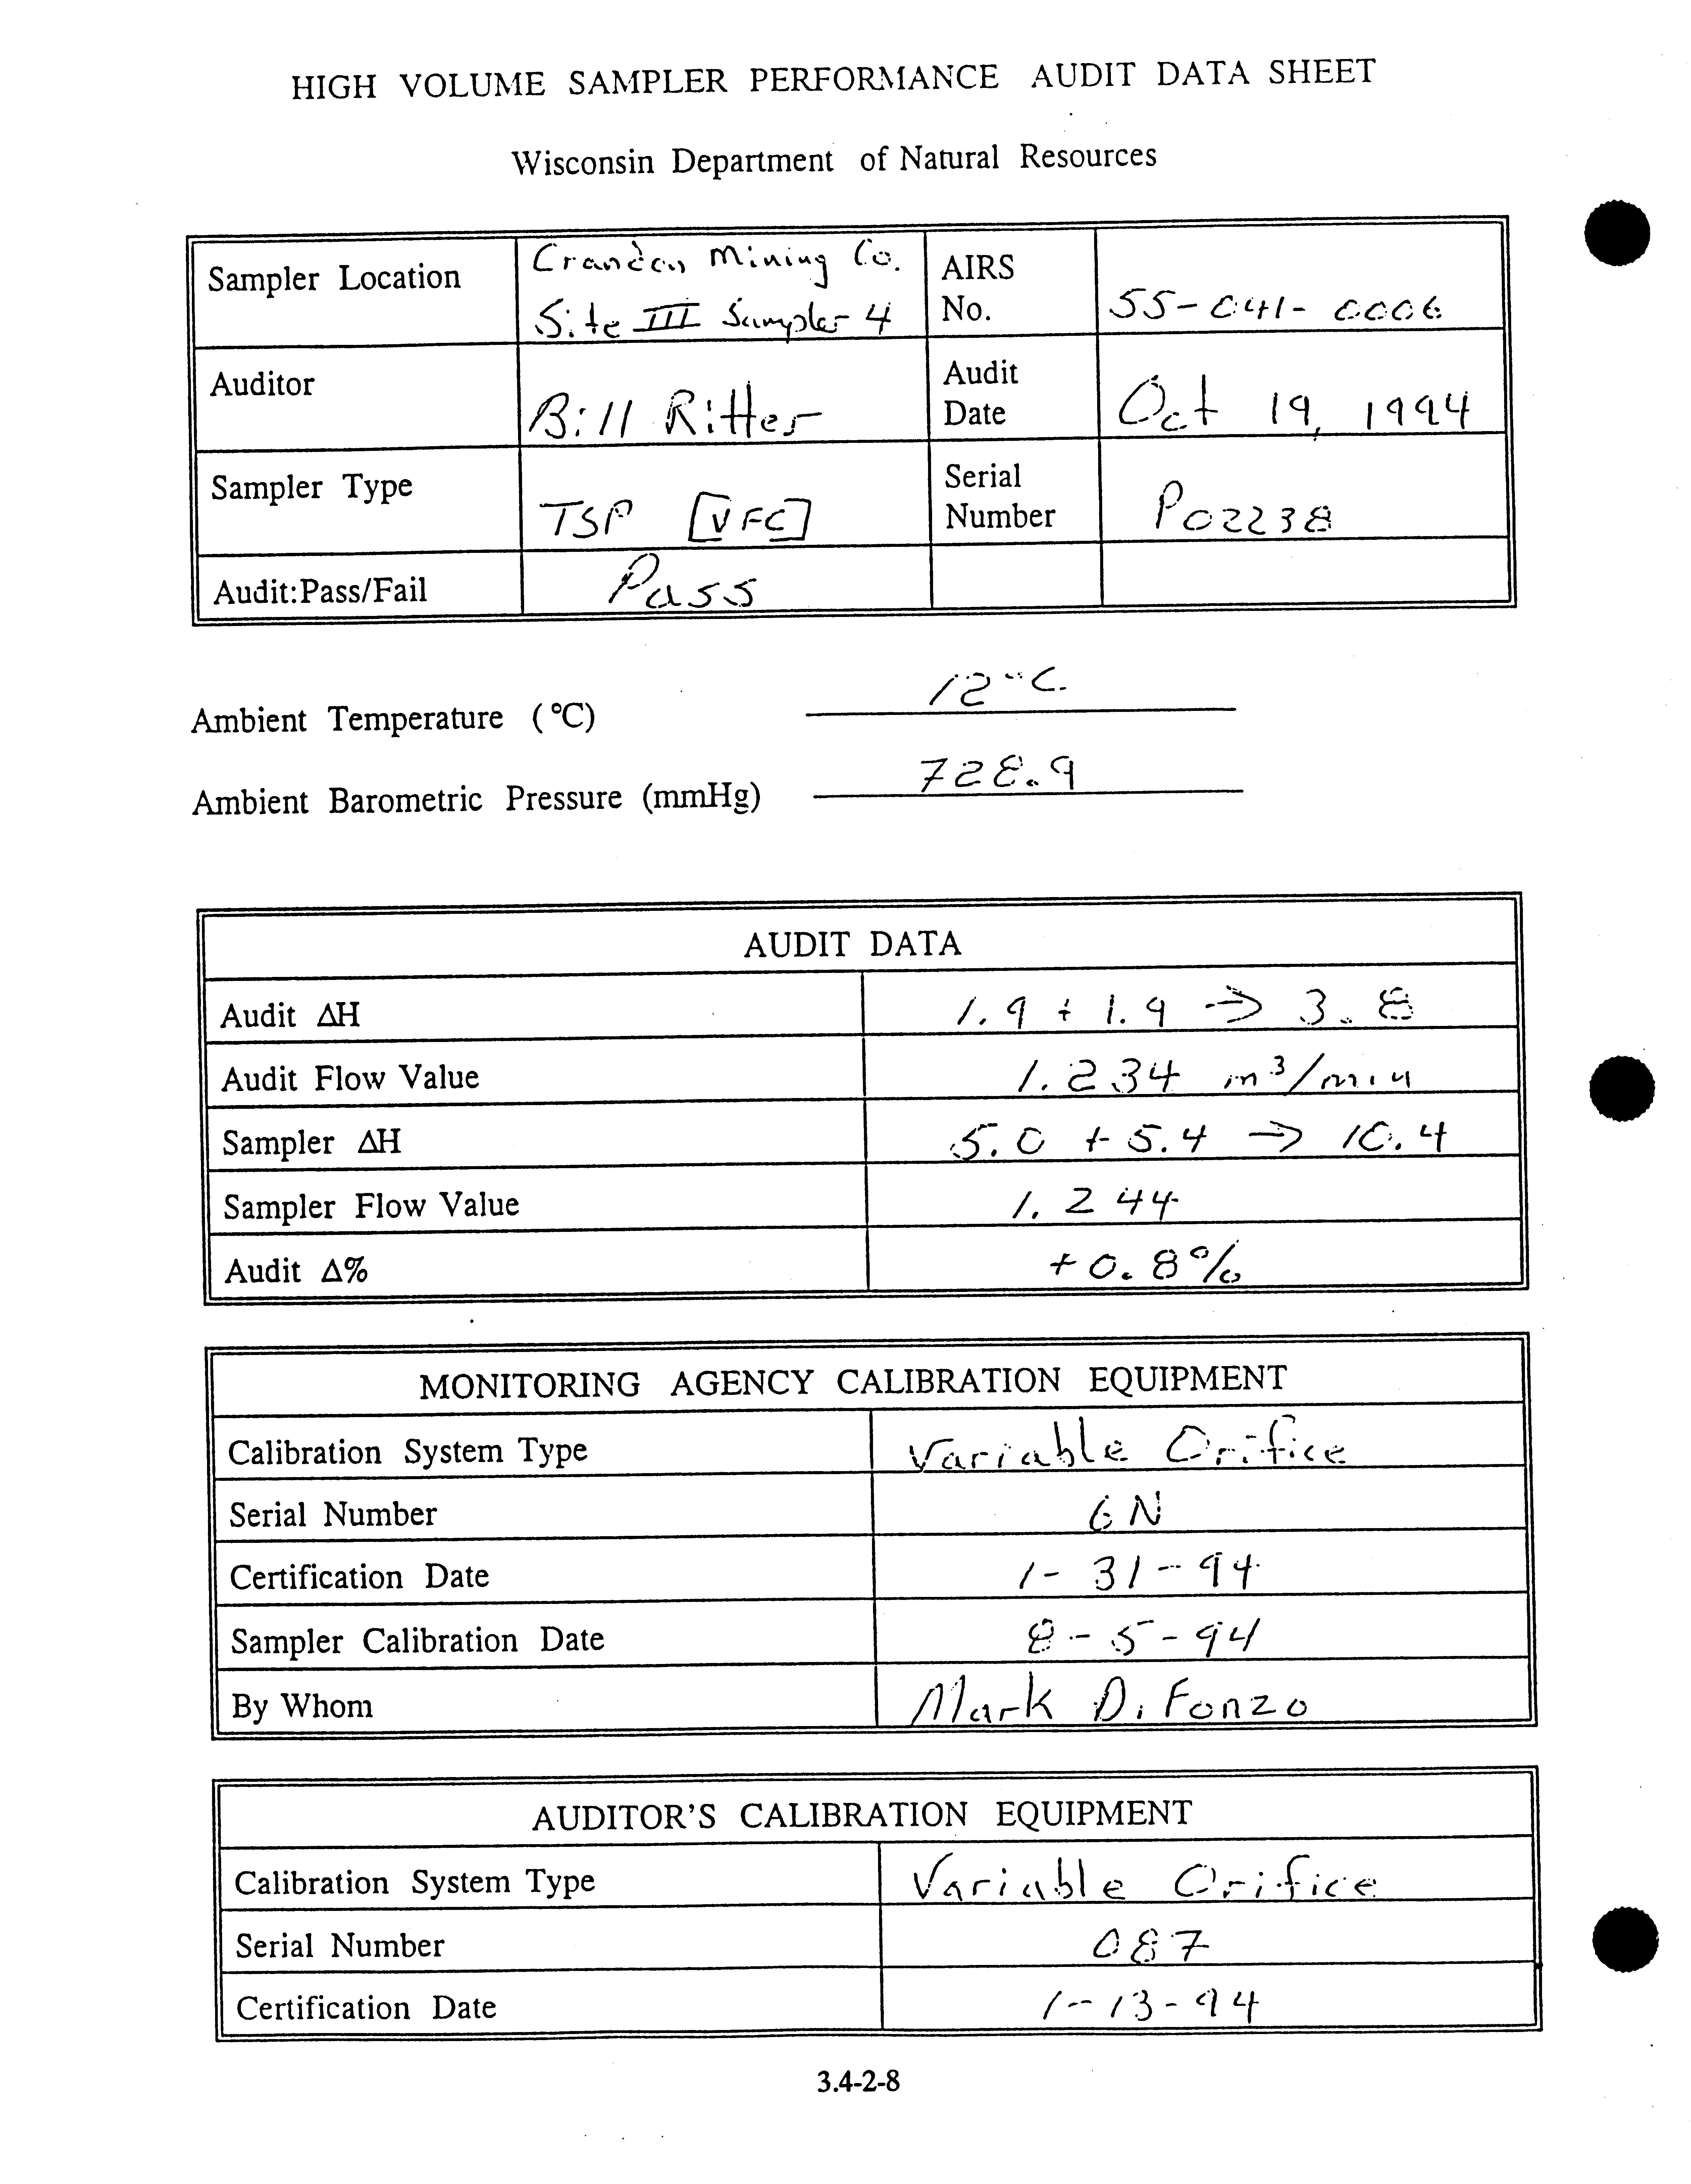 HIGH VOLUME SAMPLER PERFORMANCE AUDIT DATA SHEET
Wisconsin Department of Natural Resources
Sampler Location
Crandon Mining Co.
Site III Sampler 4
AIRS
No.
55-041-0006
Auditor
Bill Ritter
Audit
Date
Oct 19, 1994
Sampler Type
TSP [VFC]
Serial
Number
P02238
Audit:Pass/Fail
Pass
Ambient Temperature (°C) 12°C
Ambient Barometric Pressure (mmHg) 728.9
AUDIT DATA
Audit ΔH 1.9 + 1.9 → 3.8
Audit Flow Value 1.234 m³/min
Sampler ΔH 5.0 + 5.4 → 10.4
Sampler Flow Value 1.244
Audit Δ% +0.8%
MONITORING AGENCY CALIBRATION EQUIPMENT
Calibration System Type Variable Orifice
Serial Number 6N
Certification Date 1-31-94
Sampler Calibration Date 8-5-94
By Whom Mark DiFonzo
AUDITOR'S CALIBRATION EQUIPMENT
Calibration System Type Variable Orifice
Serial Number 087
Certification Date 1-13-94
3.4-2-8